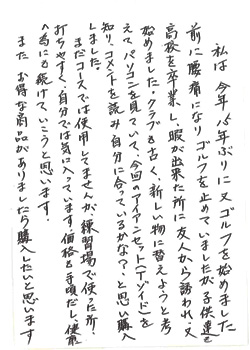 私は今年15年ぶりに又ゴルフを始めました
前に腰痛になりゴルフを止めていましたが子供達も
高校を卒業し、暇が出来た所に友人から誘われ、又
始めました。クラブも古く、新しい物に替えようと考
えて、パソコンを見ていて、今回のアイアンセット(T-ゾイド)を
知り、コメントを読み自分に合っているかな?、と思い購入
しました。
まだコースでは使用してませんが、練習場で使った所、
打ちやすく、自分では気に入っています。価格も手頃だし、健康
の為にも続けていこうと思います。
また、お得な商品がありましたら購入したいと思います